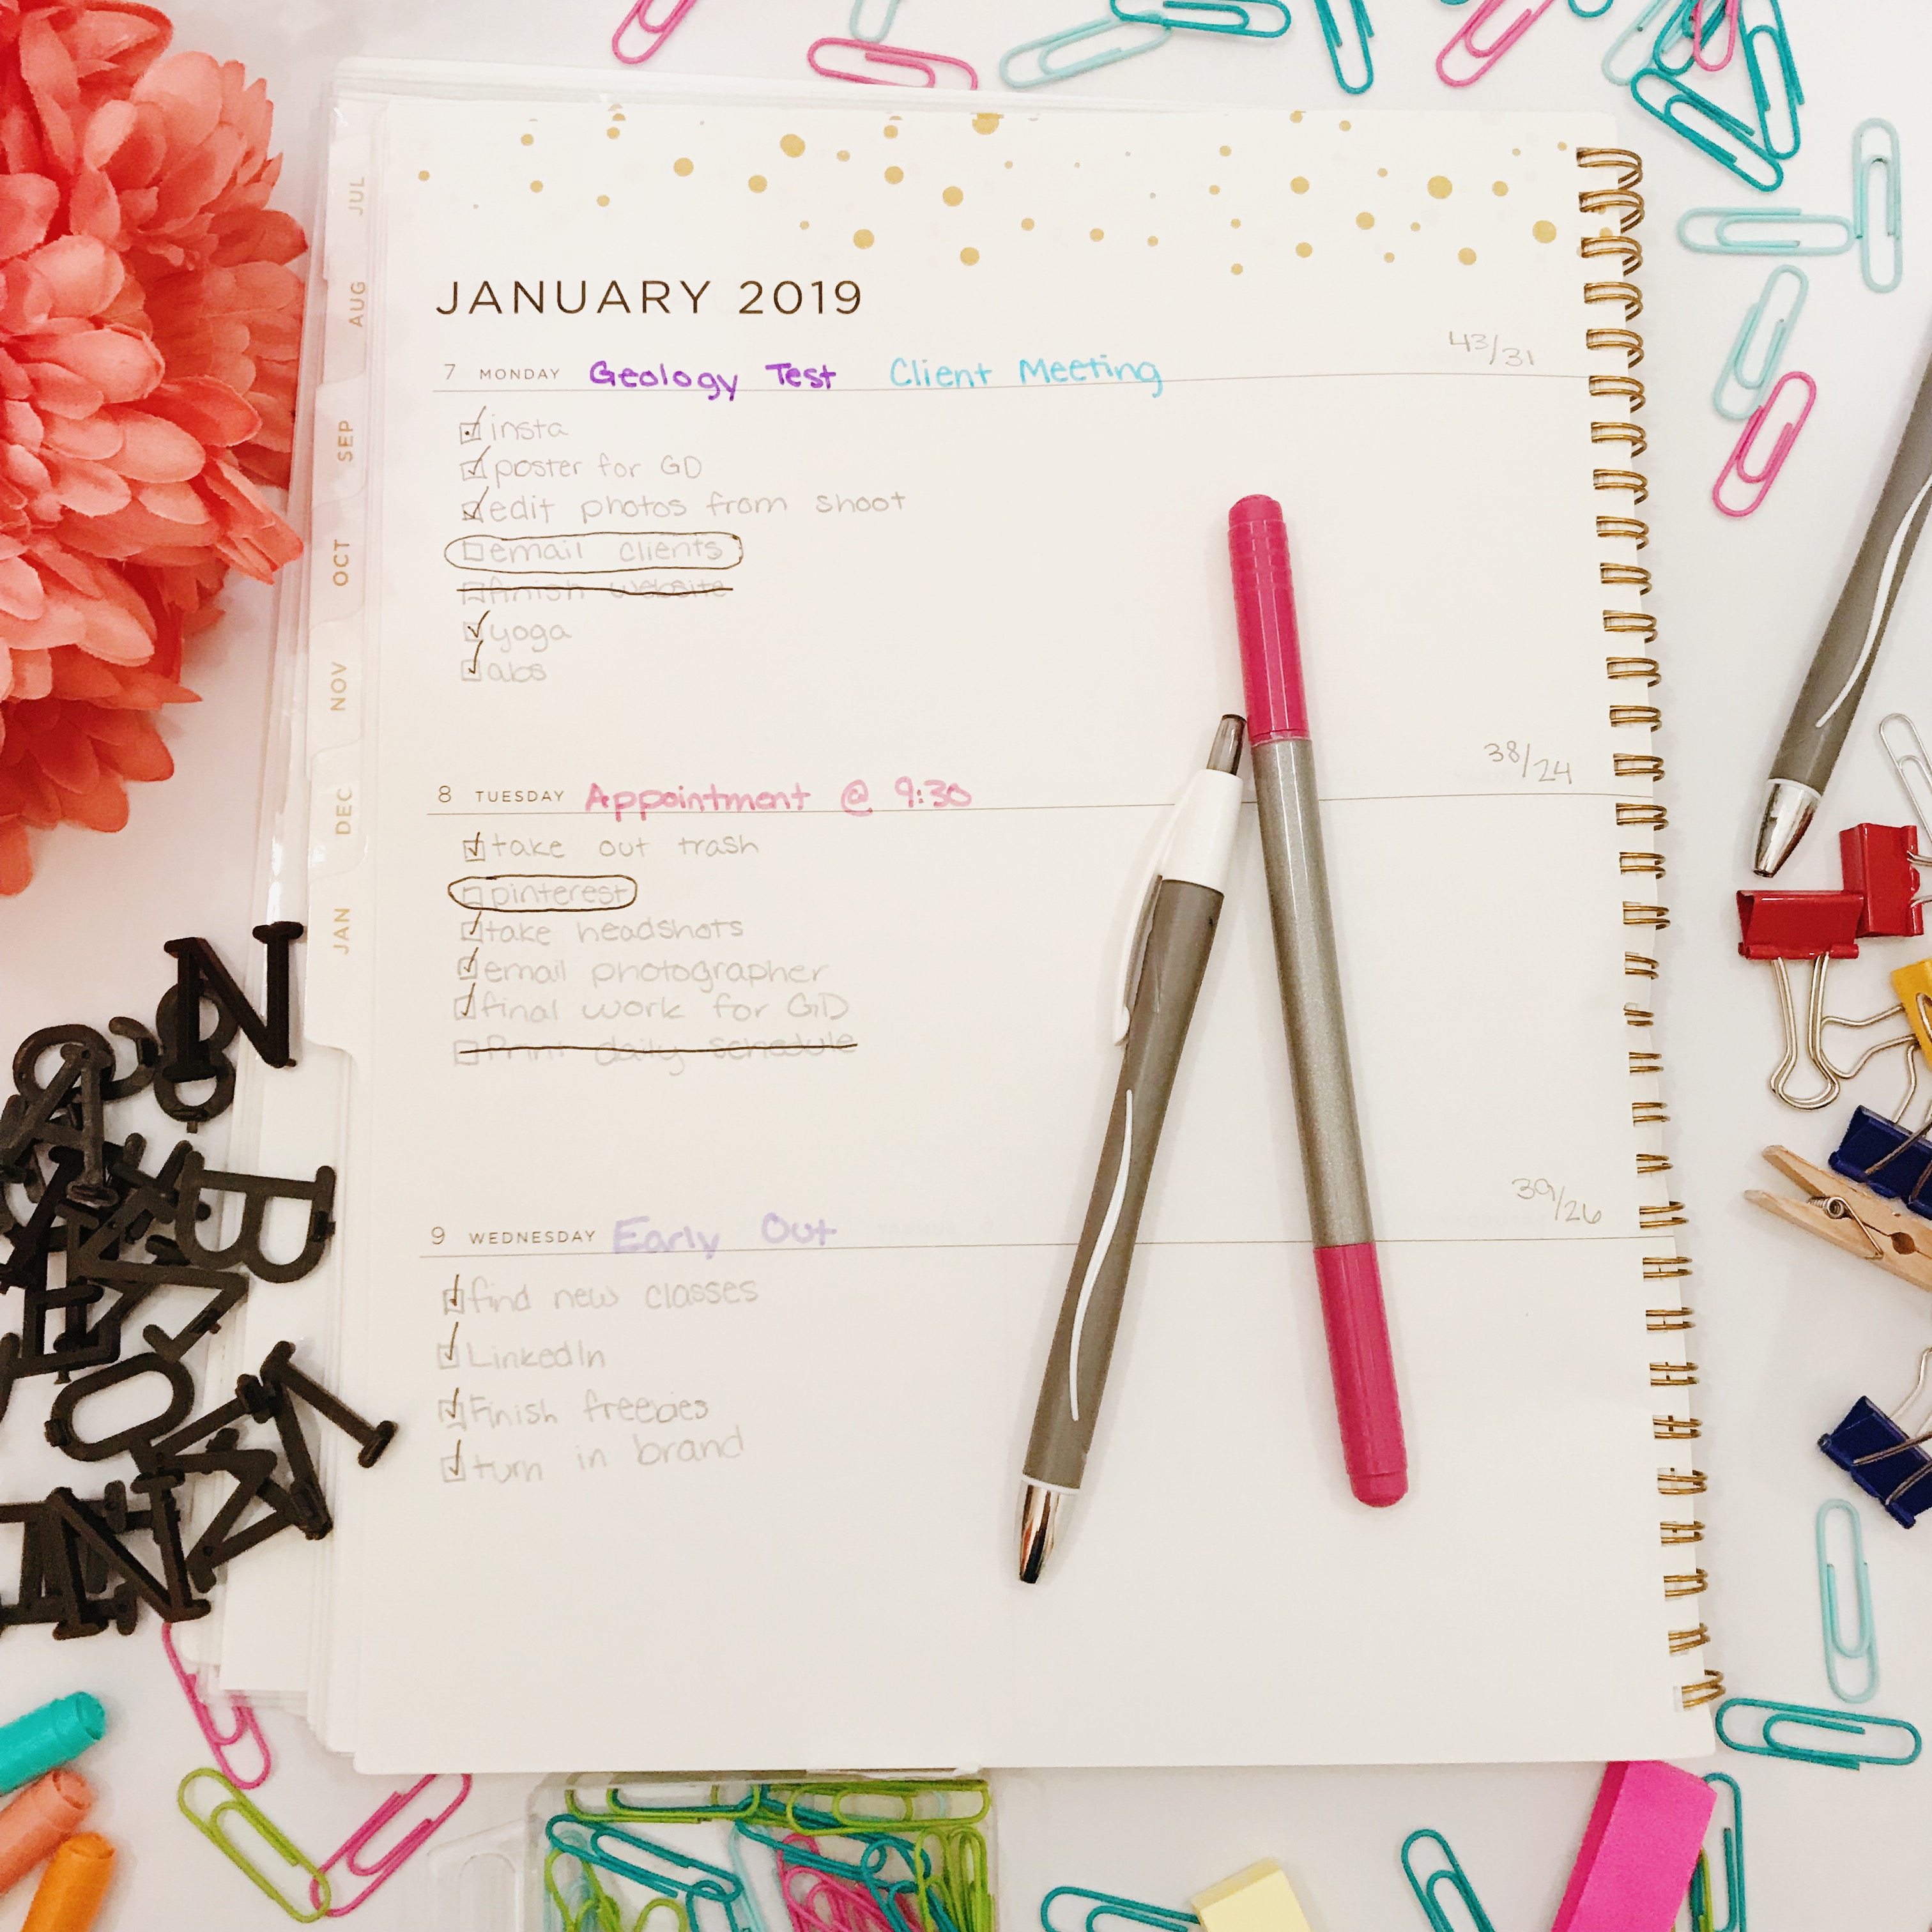 JANUARY 2019
7 MONDAY Geology Test Client Meeting 43/31
insta
poster for GD
edit photos from shoot
email clients
finish website
yoga
abs
8 TUESDAY Appointment @ 9:30 38/24
take out trash
pinterest
take headshots
email photographer
final work for GD
Print daily schedule
9 WEDNESDAY Early Out 39/26
find new classes
LinkedIn
Finish freebies
turn in brand
JUL
AUG
SEP
OCT
NOV
DEC
JAN
N
B